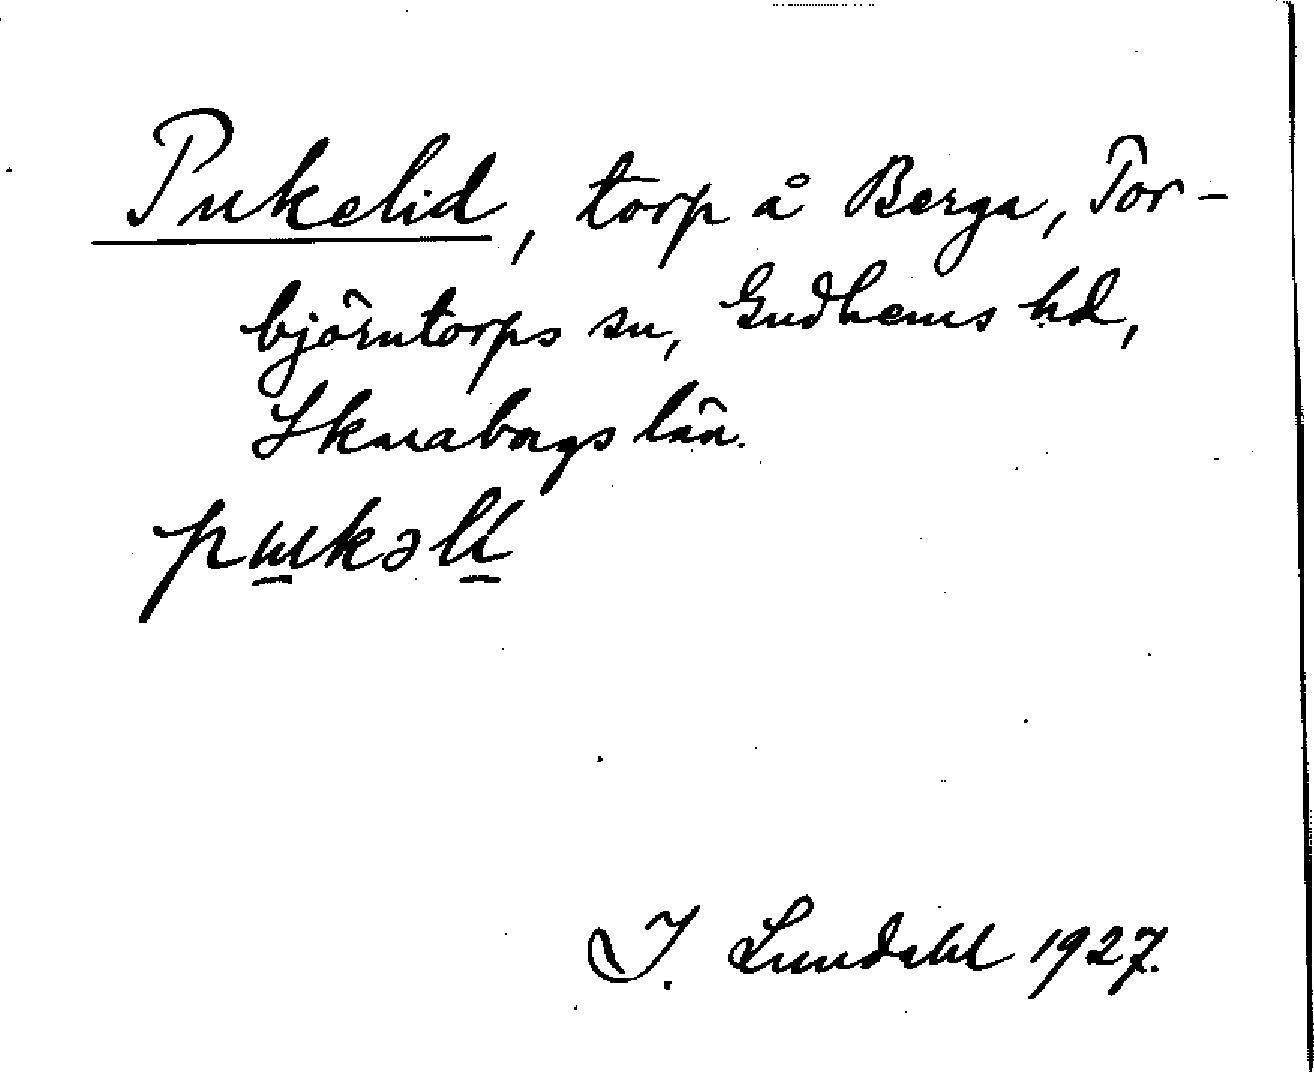 Pukelid, torp å Berga, Tor-
björntorps sn, Gudhems hd,
Skaraborgs län.
pɯkəlí
I. Lundahl 1927.